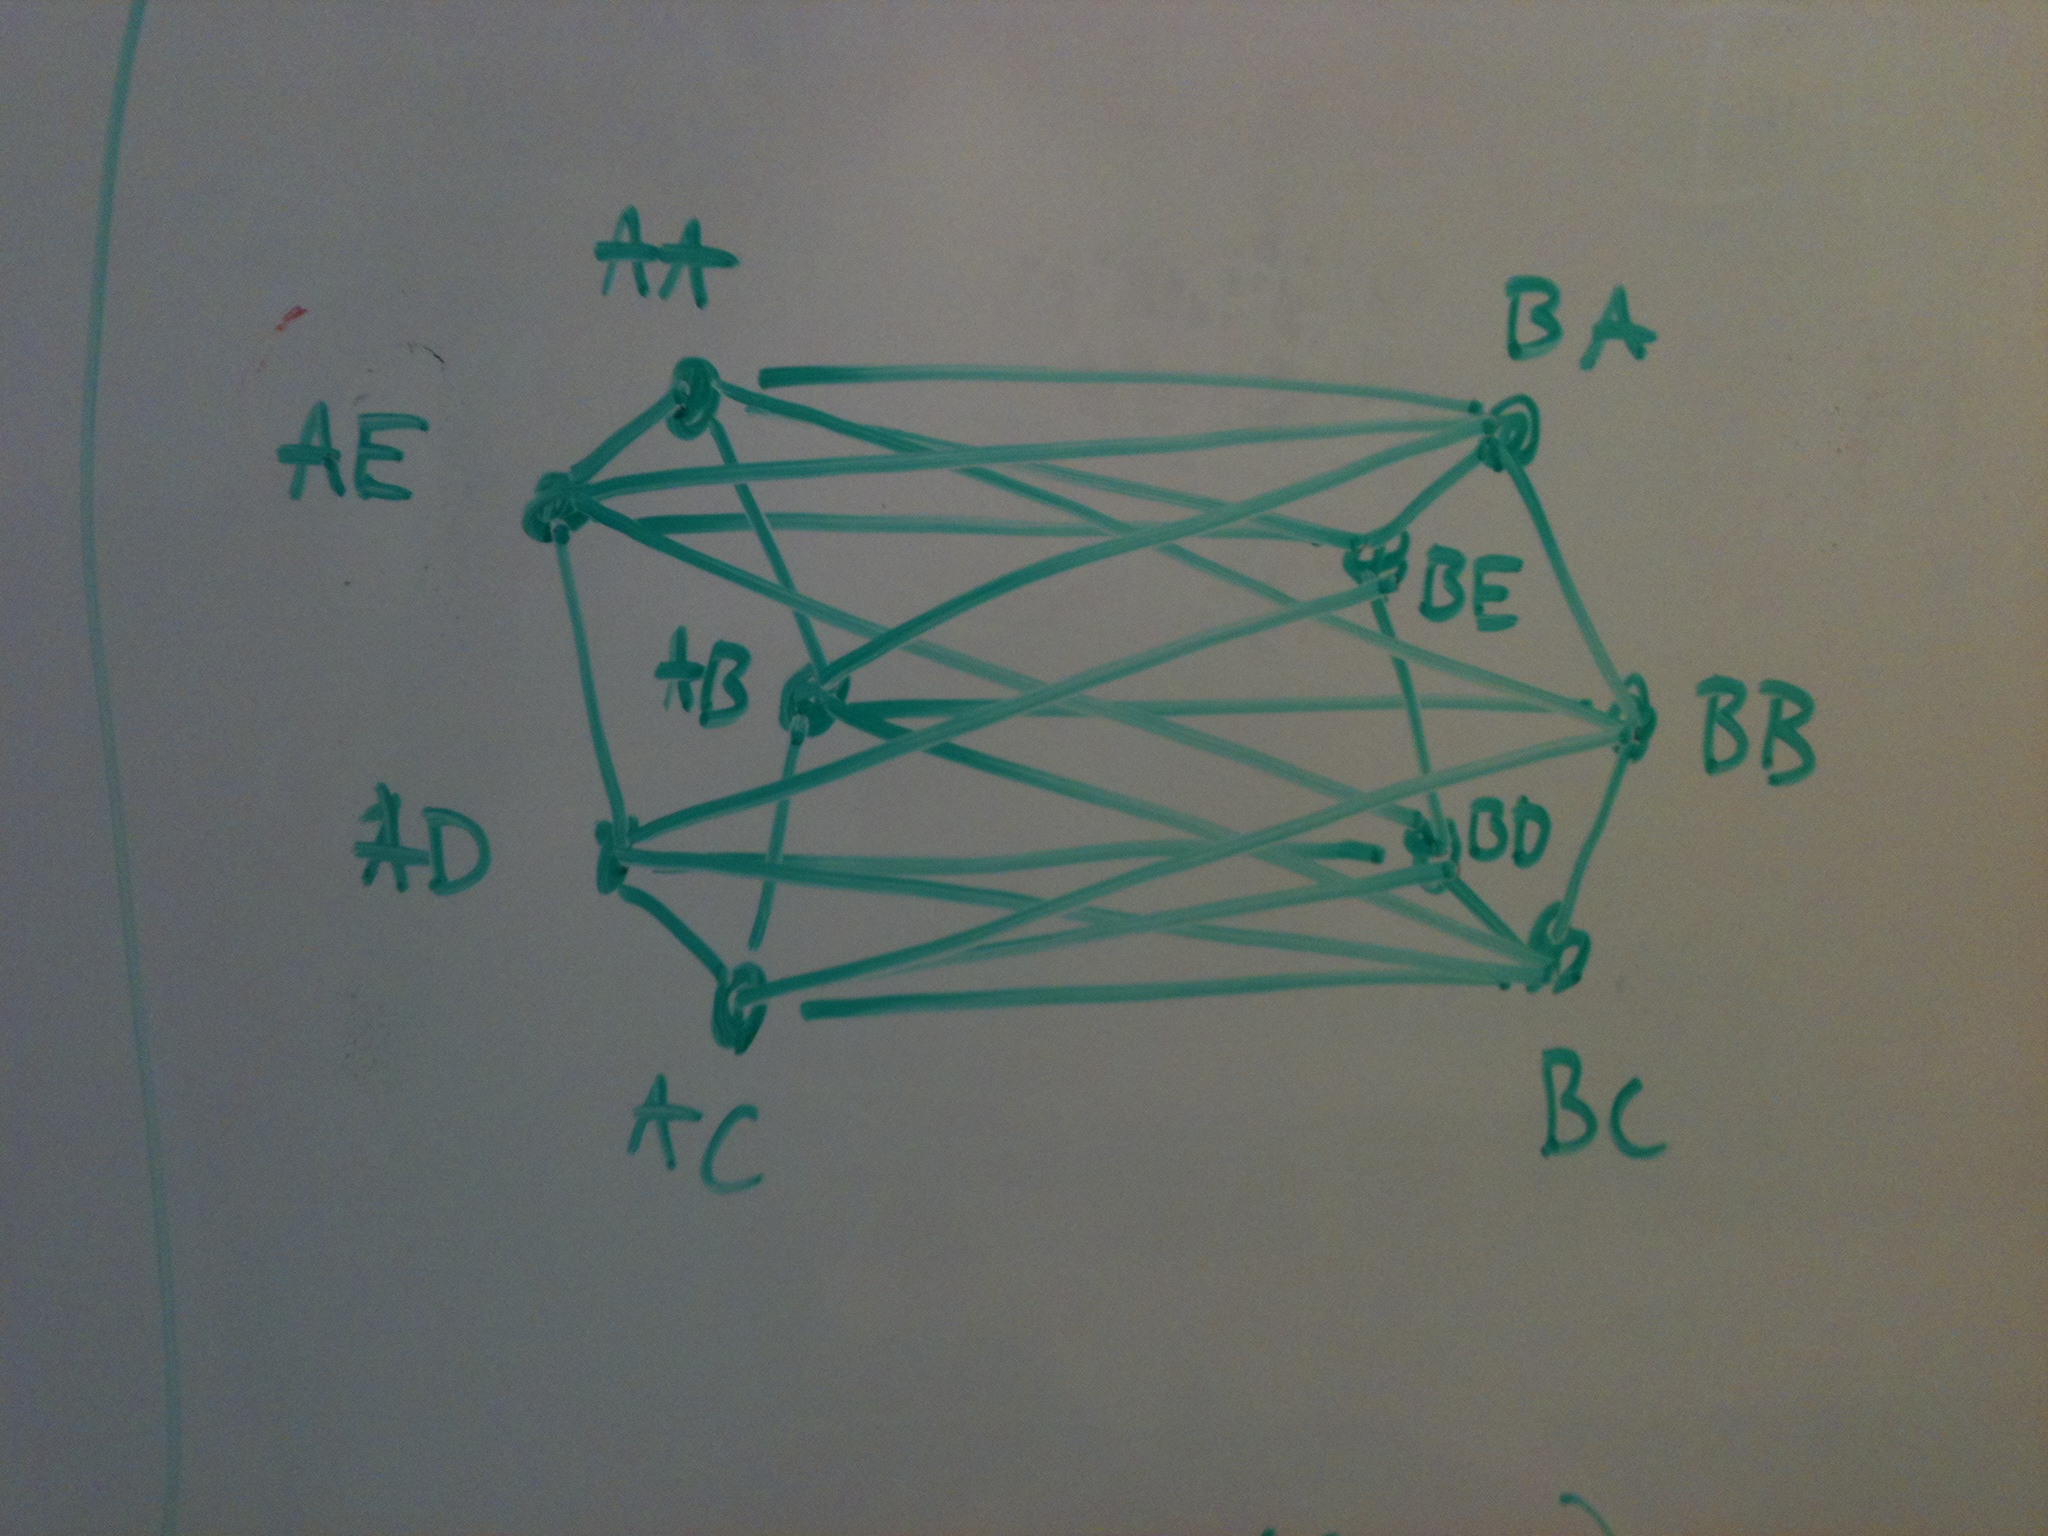 AA
BA
AE
BE
AB
BB
AD
BD
AC
BC